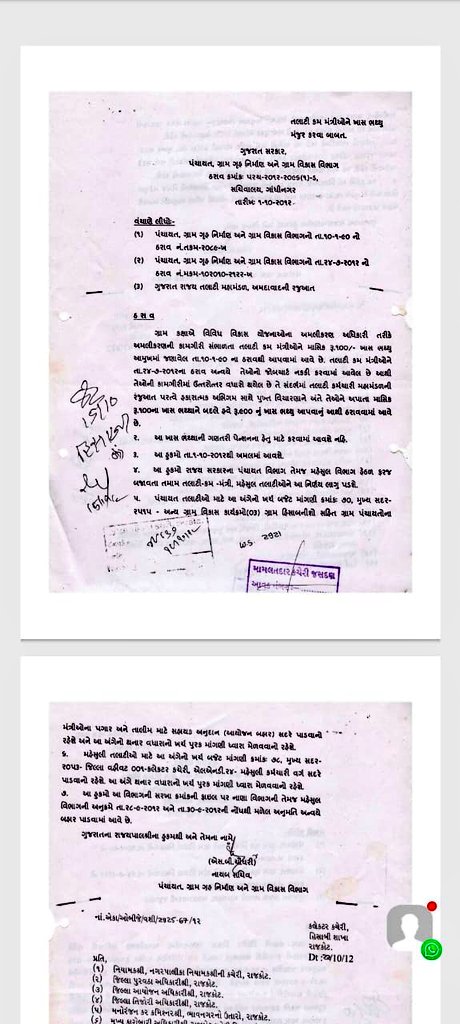 તલાટી કમ મંત્રીઓને ખાસ ભથ્થુ
મંજુર કરવા બાબત.
ગુજરાત સરકાર,
પંચાયત, ગ્રામ ગૃહ નિર્માણ અને ગ્રામ વિકાસ વિભાગ
ઠરાવ ક્રમાંક: પરચ-૨૦૧૨-૨૦૯૬(૧)-ડ,
સચિવાલય, ગાંધીનગર
તારીખ: ૧-૧૦-૨૦૧૨
વંચાણે લીધો:-
(૧) પંચાયત, ગ્રામ ગૃહ નિર્માણ અને ગ્રામ વિકાસ વિભાગનો તા.૧૦-૧-૯૦ નો
ઠરાવ નં.તકમ-૨૦૮૯-ખ
(૨) પંચાયત, ગ્રામ ગૃહ નિર્માણ અને ગ્રામ વિકાસ વિભાગનો તા.૨૪-૭-૨૦૧૨ નો
ઠરાવ નં.મકમ-૧૦૨૦૧૦-૨૧૨૨-ખ
(૩) ગુજરાત રાજ્ય તલાટી મહામંડળ, અમદાવાદની રજુઆત
ઠરાવ
ગ્રામ કક્ષાએ વિવિધ વિકાસ યોજનાઓના અમલીકરણ અધિકારી તરીકે
અમલીકરણની કામગીરી સંભાળતા તલાટી કમ મંત્રીઓને માસિક રૂ.૧૦૦/- ખાસ ભથ્થુ
આમુખમાં જણાવેલ તા.૧૦-૧-૯૦ ના ઠરાવથી આપવામાં આવે છે. તલાટી કમ મંત્રીઓને
તા.૨૪-૭-૨૦૧૨ના ઠરાવ અન્વયે તેઓનો જોબચાર્ટ નકકી કરવામાં આવેલ છે આથી
તેઓની કામગીરીમાં ઉત્તરોત્તર વધારો થયેલ છે તે સંદર્ભમાં તલાટી કર્મચારી મહામંડળની
રજુઆત પરત્વે હકારાત્મક અભિગમ સાથે પુખ્ત વિચારણાને અંતે તેઓને અપાતા માસિક
રૂ.૧૦૦ના ખાસ ભથ્થાને બદલે હવે રૂ.૯૦૦ નું ખાસ ભથ્થુ આપવાનું આથી ઠરાવવામાં આવે
છે.
૨. આ ખાસ ભથ્થાની ગણતરી પેન્શનના હેતુ માટે કરવામાં આવશે નહિ.
૩. આ હુકમો તા.૧-૧૦-૨૦૧૨થી અમલમાં આવશે.
૪. આ હુકમો રાજ્ય સરકારના પંચાયત વિભાગ તેમજ મહેસુલ વિભાગ હેઠળ ફરજ
બજાવતા તમામ તલાટી-કમ -મંત્રી, મહેસુલ તલાટીઓને આ નિર્ણય લાગુ પડશે.
૫. પંચાયત તલાટીઓ માટે આ અંગેનો ખર્ચ બજેટ માંગણી ક્રમાંક: ૭૦, મુખ્ય સદર-
૨૫૧૫ - અન્ય ગ્રામ વિકાસ કાર્યક્રમો(૦૩) ગ્રામ હિસાબનીશો સહિત ગ્રામ પંચાયતોના
મામલતદાર કચેરી જસદણ
મંત્રીઓના પગાર અને તાલીમ માટે સહાયક અનુદાન (આયોજન બહાર) સદરે પાડવાનો
રહેશે અને આ અંગેનો થનાર વધારાનો ખર્ચ પુરક માંગણી ધ્વારા મેળવવાનો રહેશે.
૬. મહેસુલી તલાટીઓ માટે આ અંગેનો ખર્ચ બજેટ માંગણી ક્રમાંક: ૭૮, મુખ્ય સદર-
૨૦૫૩- જિલ્લા વહીવટ ૦૦૧-કલેકટર કચેરી, એલએનડી.૨૪- મહેસુલી કર્મચારી વર્ગ સદરે
પાડવાનો રહેશે. આ અંગે થનાર વધારાનો ખર્ચ પુરક માંગણી ધ્વારા મેળવવાનો રહેશે.
૭. આ હુકમો આ વિભાગની સરખા ક્રમાંકની ફાઇલ પર નાણા વિભાગની તેમજ મહેસુલ
વિભાગની અનુક્રમે તા.૨૮-૯-૨૦૧૨ અને તા.૩૦-૯-૨૦૧૨ની નોંધથી મળેલ અનુમતિ અન્વયે
બહાર પાડવામાં આવે છે.
ગુજરાતના રાજ્યપાલશ્રીના હુકમથી અને તેમના નામે,
(એસ.બી.ચૌધરી)
નાયબ સચિવ,
પંચાયત, ગ્રામ ગૃહ નિર્માણ અને ગ્રામ વિકાસ વિભાગ
કલેકટર કચેરી,
હિસાબી શાખા
રાજકોટ.
પ્રતિ,
(૧) નિયામકશ્રી, નગરપાલીકા નિયામકશ્રીની કચેરી, રાજકોટ.
(૨) જિલ્લા પુરવઠા અધિકારીશ્રી, રાજકોટ.
(૩) જિલ્લા આયોજન અધિકારીશ્રી, રાજકોટ.
(૪) જિલ્લા તિજોરી અધિકારીશ્રી, રાજકોટ.
(૫) મનોરંજન કર કમિશ્નરશ્રી, ભાવનગરનો ઉતારો, રાજકોટ.